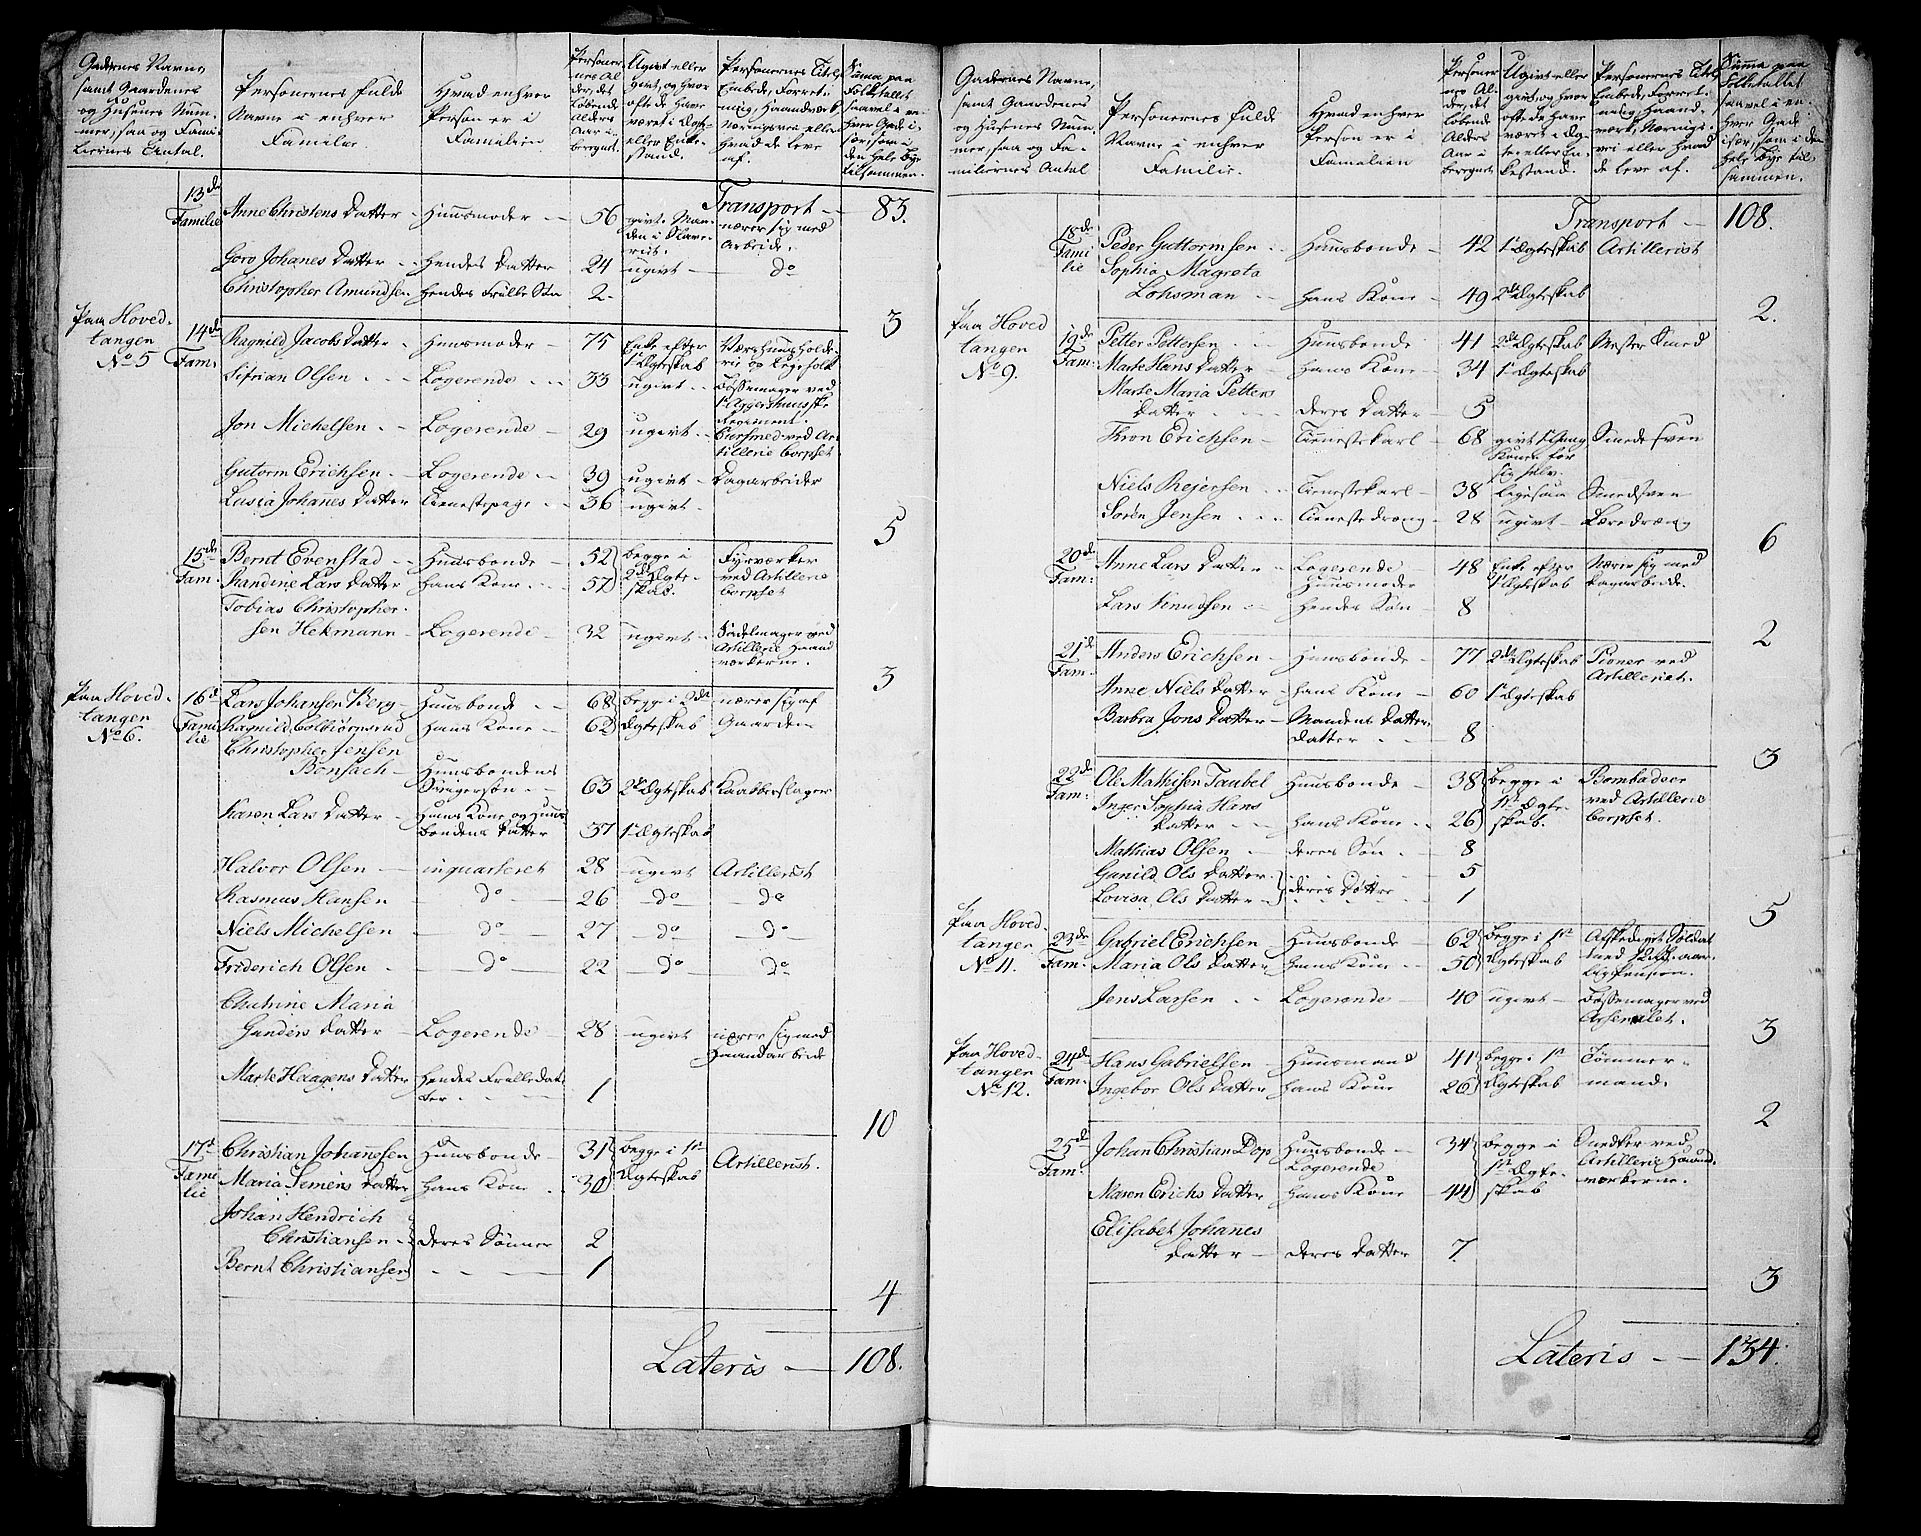 Gadernes Navne
samt Gaardenes
og Husenes Num-
mer, saa og Fami-
liernes Antal.
Personernes fulde
Navne i enhver
Familie.
Hvad enhver
Person er i
Familien
Personer-
nes Al-
der, det
løbende
Alders
Aar i-
beregnet.
Ugivt eller
givt, og hvor
ofte de have
været i Ægte-
eller Enke-
stand.
Personernes Titel,
Embede, Forret-
ning, Haandværk
Næringsvei eller
hvad de leve
af.
Suma paa
Folketallet
saavel i en-
hver Gade i-
sær, som i
den hele Bye
tilsammen.
Transport — 83.
13de Familie Anne Christens Datter - Huusmoder - 56 givt. Man-
den i Slave-
riet. nærer sig med
Arbeide.
Goro Johanes Datter - Hendes Datter 24 ugivt - do
Christopher Amundsen Hendes Frille Søn 2.
3
Paa Hoved-
tangen
No 5
14de Fam: Ragnild Jacobs Datter - Huusmoder - 75 Enke efter
1ste Ægteskab
Sifrian Olsen - - - Logerende - - 33 ugivt - Bøssemager ved
1ste Aggershuusske
Regiment.
Jon Michelsen - - Logerende - 29 ugivt - Cursmed ved Ar-
tillerie Corpset.
Gutorm Erichsen - Logerende - 39 ugivt - Dagarbeider
Lusia Johanes Datter Tienestepige - 36 ugivt -
5
15de Fam: Bernt Evenstad - Huusbonde - 52 begge i
2det Ægte-
skab. Fyrværker
ved Artillerie
Corpset
Randine Lars Datter hans Kone - 57
Tobias Christopher-
sen Hekmann - Logerende - 32 ugivt - Sadelmager ved
Artillerie Haand
værkerne.
3
Paa Hoved-
tangen
No 6.
16de Familie Lars Johansen Berg - Huusbonde - 68 begge i 2det
Ægteskab nærer sig af
Gaarden
Ragnild Colbiørnsrud hans Kone - 62
Christopher Jensen
Bonsach - Huusbondens
Svigersøn - 63 2det Ægteskab Kaabberslager
Karen Lars Datter - Hans Kone og Huus
bondens Datter 37 1ste Ægteskab
Halvor Olsen - inquarteret 28 ugivt Artillerist
Rasmus Hansen - do - 26 - do - - do -
Niels Michelsen - do - 27 - do - - do -
Friderich Olsen - - do - 22 - do - do
Chatrine Maria
Gunders Datter - Logerende - 28 ugivt nærer sig med
Haandarbeide
Marte Haagens Datter Hendes Frilledat-
ter - - - 1
10
17de Familie Christian Johannesen Huusbonde - 31 begge i 1ste
Ægteskab Artillerist.
Maria Simens Datter hans Kone - 30
Johan Hendrich
Christiansen - deres Sønner 2
Bernt Christiansen - - - 1
4
Lateris — 108.
Gadernes Navne,
samt Gaardenes
og Husenes Num-
mer, saa og Fa-
miliernes Antal
Personernes fulde
Navne i enhver
Familie.
Hvad enhver
Person er i
Familien
Personer-
nes Al-
der, det
løbende
Alders
Aar i
beregnet
Ugivt eller
givt, og hvor
ofte de have
været i Æg-
te eller En-
kestand.
Personernes Titel,
Embede, Forret-
ning, Haand-
værk, Nærings-
vei eller hvad
de leve af.
Suma paa
Folketallet
saavel i en-
hver Gade
især, som i den
hele Bye til
sammen.
Transport — 108.
18de Familie Peder Guttormsen - Huusbonde - 42 1ste Ægteskab Artillerist
Sophia Magreta
Lohsman - - hans Kone - 49 2det Ægteskab
2.
Paa Hoved
tangen
No 9.
19de Fam: Petter Pettersen - - Huusbonde - 41 2det Ægteskab Mester Smed
Marte Hans Datter - Hans Kone - 34 1ste Ægteskab
Marte Maria Petters
Datter - - deres Datter - 5
Thron Erichsen - Tienestekarl - 68 Smedesven
Niels Rejersen - - Tienestekarl - 38 ligesaa Smedsven
Sørèn Jensen - - - Tienestedreng - 28 ugivt - Læredreng
6
20de Fam: Anne Lars Datter - Logerende
Huusmoder - 48 Enke efter
1ste Ægteskab Nærer sig med
Dagarbeide.
Lars Knudsen - - Hendes Søn - 8
2
21de Fam: Anders Erichsen - Huusbonde - 77 2det Ægteskab Pioner ved
Artilleriet.
Anne Niels Datter - hans Kone - 60 1ste Ægteskab
Barbra Jons Datter - Mandens Datter-
datter - - 8
3
22de Fam: Ole Mathisen Taubel Huusbonde - 38 begge i
1ste Ægte-
skab. Bombadeer
ved Artillerie
Corpset.
Inger Sophia Hans
Datter - - hans Kone - - 26
Mathias Olsen - deres Søn - 8
Gunild Ols Datter - deres Døttre 5
Lovisa Ols Datter - - - - 1
5
Paa Hoved-
tangen
No 11.
23de Fam: Gabriel Erichsen - Huusbonde 62 begge i 1ste
Ægteskab Afskediget Soldat
Maria Ols Datter hans Kone - 50
Jens Larsen - - Logerende - 40 ugivt - Bøssemager ved
Arsenalet.
3
Paa Hoved-
tangen
No 12.
24de Fam: Hans Gabrielsen - Huusmand 41 begge i 1ste
Ægteskab Tømmer-
mand.
Ingebor Ols Datter hans Kone 26
2
25de Fam: Johan Christian Dop Huusbonde -
Logerende 34 begge i
1ste Ægte-
skab Snedker ved
Artillerie Haand-
værkerne.
Maren Erichs Datter Hans Kone - 44
Elisabet Johanes
Datter - deres Datter 7.
3
Lateris — 134.